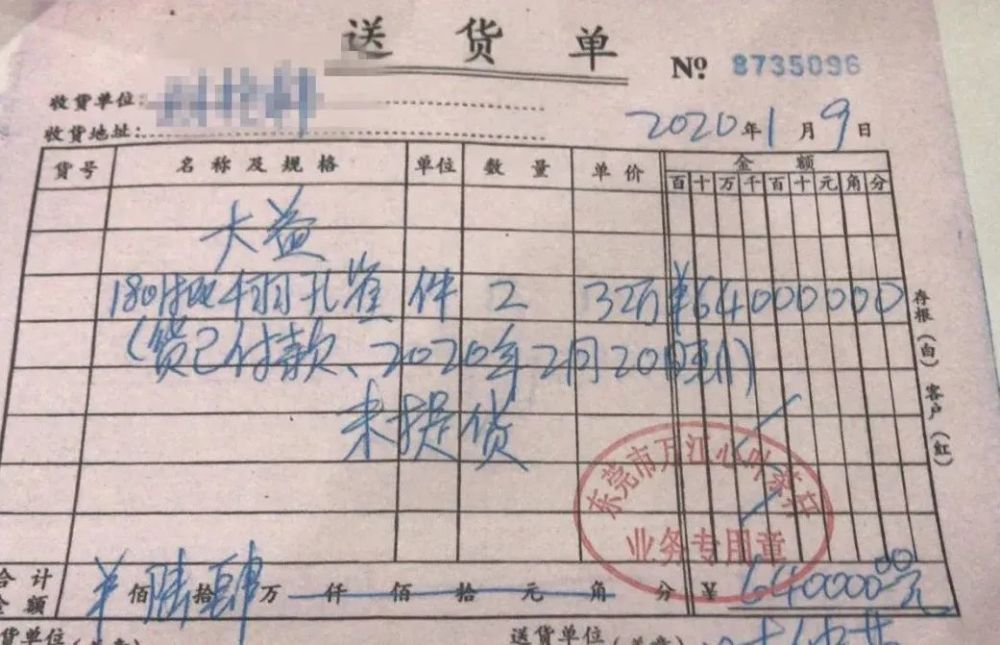 送货单
№ 8735096
收货单位:
收货地址:
2020年1月9日
货号 名称及规格 单位 数量 单价 金额
百十万千百十元角分
大益
1801批 4羽孔雀 件 2 32万 ¥64000000
(货已付款、2020年2月20日
未提货
存根(白) 客户(红)
东莞市万江心叶茶
业务专用章
合计金额 ¥ 佰陆拾肆万仟佰拾元角分 ¥ 640000.00元
货单位
送货单位